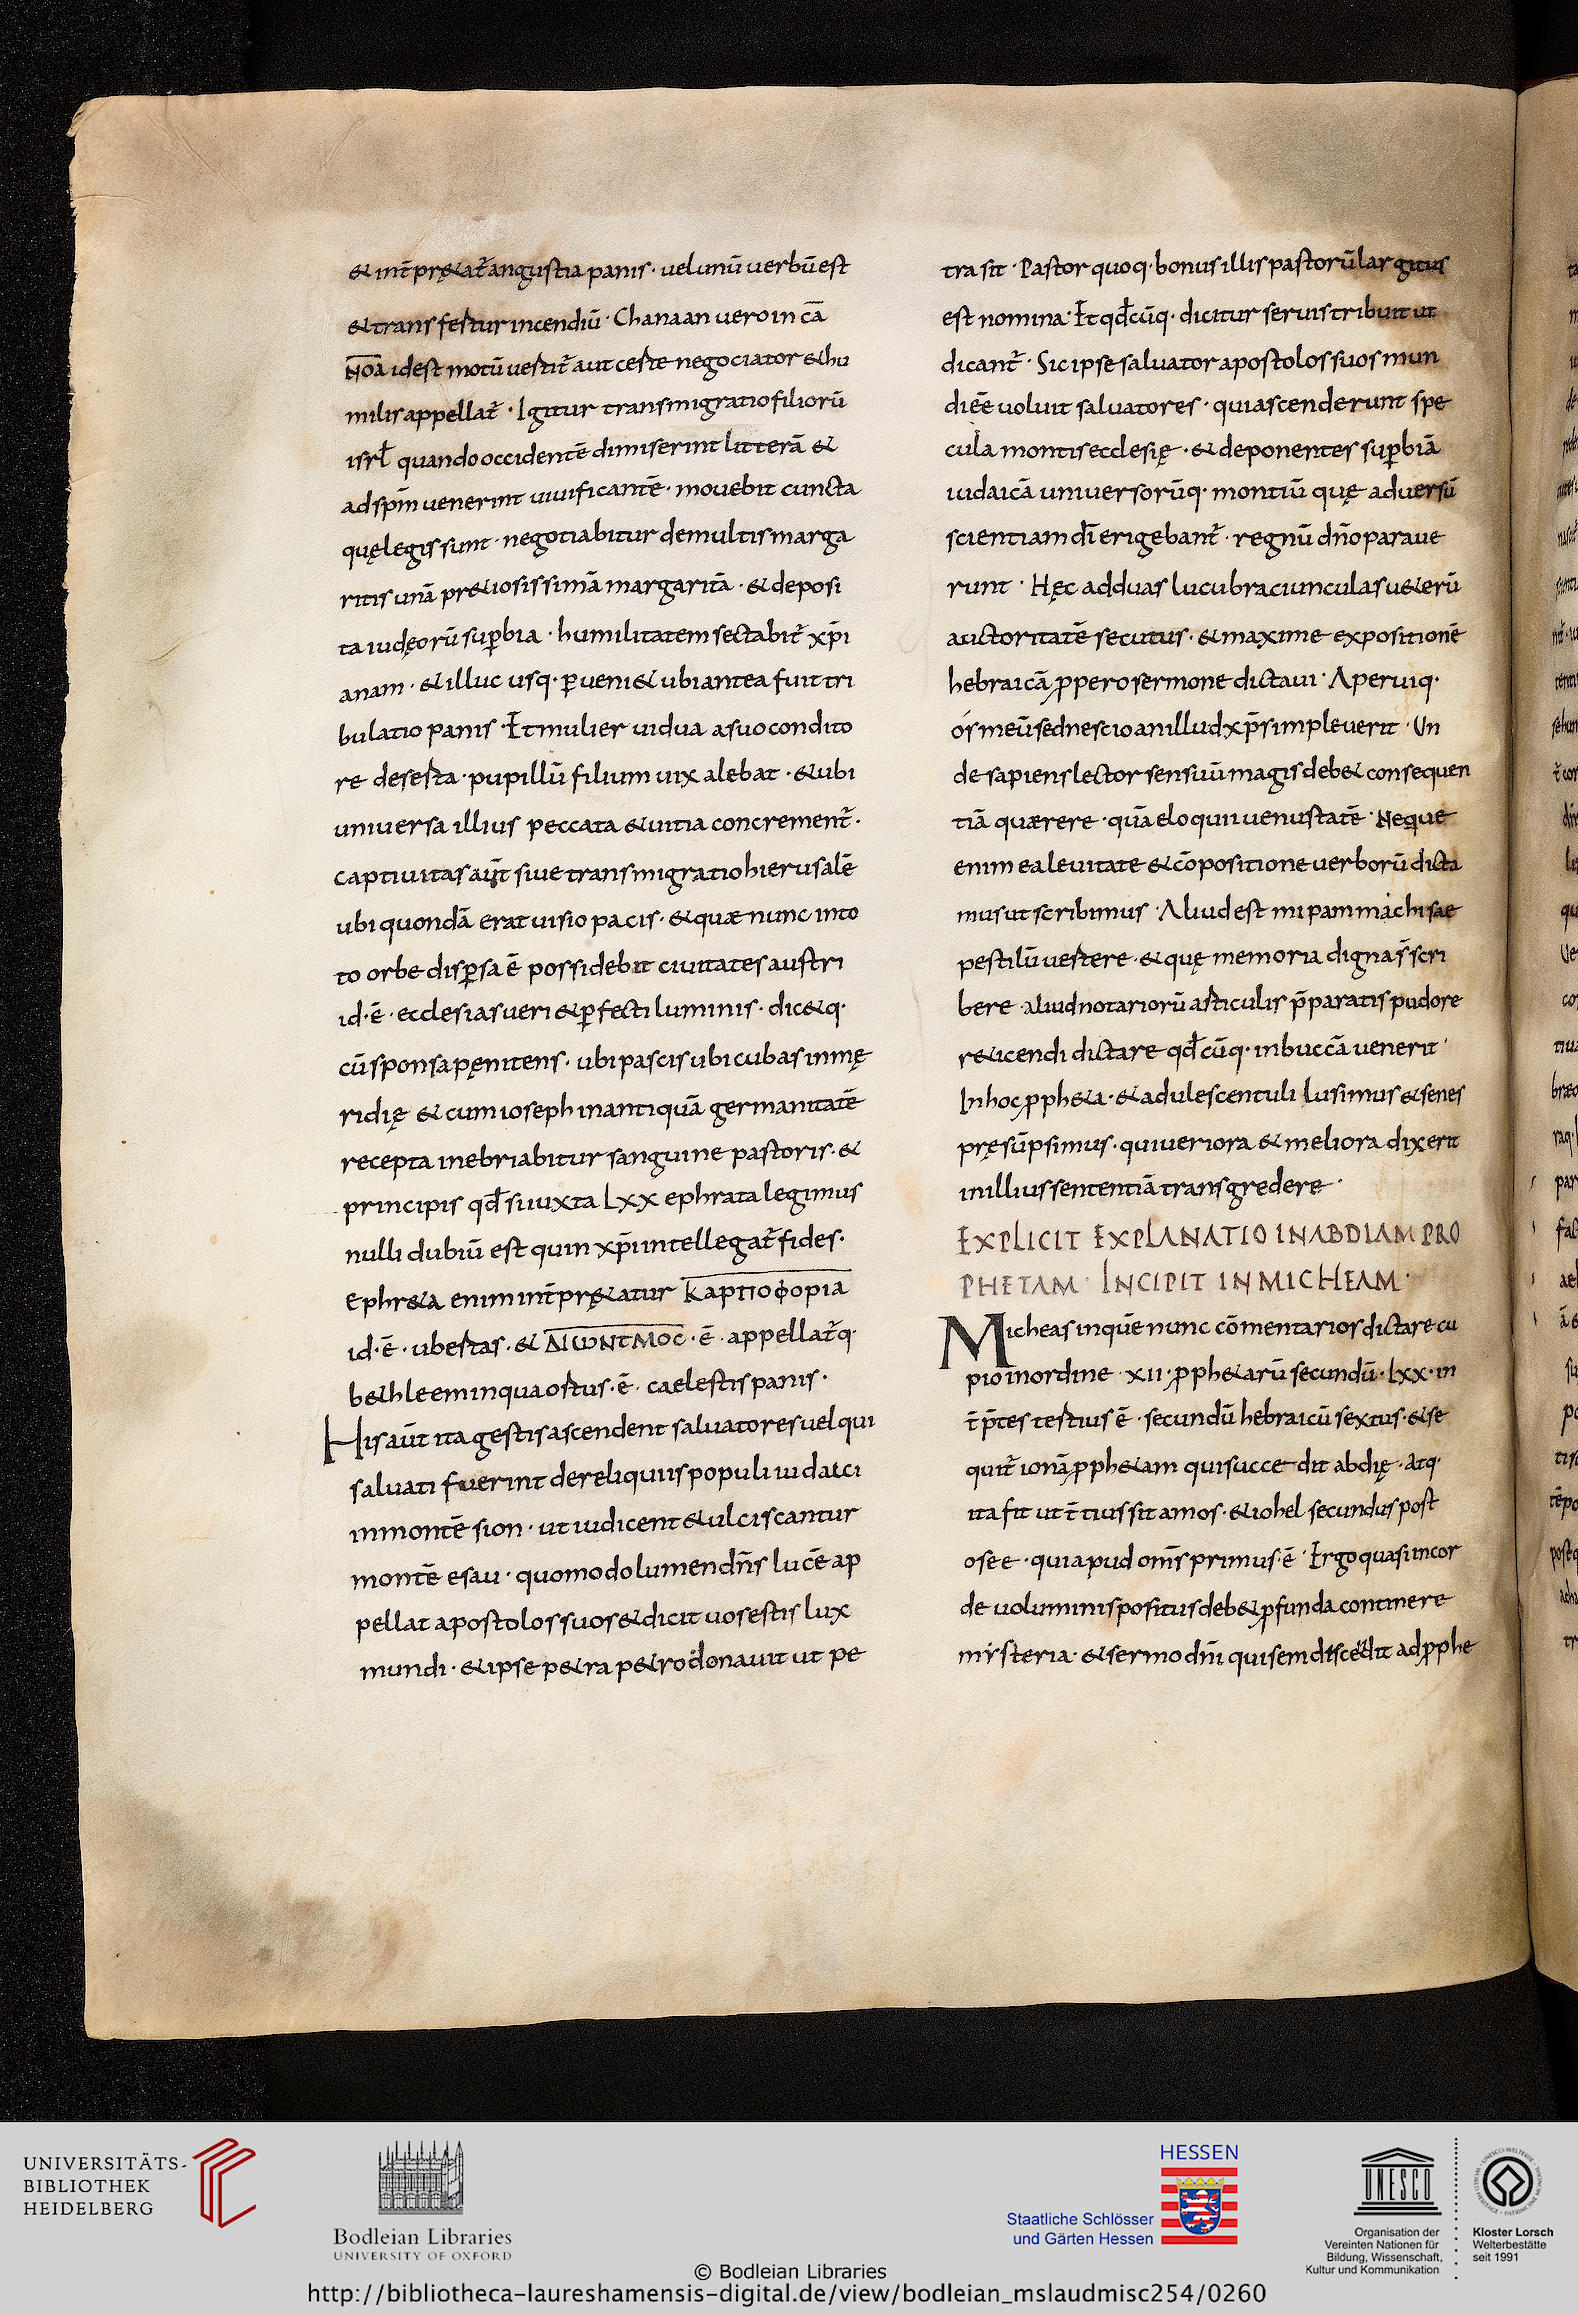 & int̄pr&at̄ angustia panis · uel unū uerbū est
& transfertur incendiū · Chanaan uero in cā
NOA idest motū uestit̄ aut certe negociator & hu
milis appellat̄ · Igitur transmigratio filiorū
isrł quando occidentē dimiserint litterā &
ad spm̄ uenerint uiuificantē · mouebit cuncta
quę legis sunt · negotiabitur de multis marga
ritis unā pr&iosissimā margaritā · & deposi
ta iudęorū sup̄bia · humilitatem sectabit̄ xp̄i
anam · & illuc usq· p̱ueni& ubi antea fuit tri
bulatio panis · Et mulier uidua a suo condito
re deserta · pupillū filium uix alebat · & ubi
uniuersa illius peccata & uitia concrement̄ ·
captiuitas aut̄ siue transmigratio hierusalē
ubi quondā erat uisio pacis · & quæ nunc in to
to orbe disp̱sa ē possidebit ciuitates austri
id · ē · ecclesias ueri & p̱fecti luminis · dic&q·
cū sponsa pęnitens · ubi pascis ubi cubas in mę
ridię & cum ioseph in antiquā germanitatē
recepta inebriabitur sanguine pastoris · &
principis qđ si iuxta Lxx ephrata legimus
nulli dubiū est quin xp̄i intellegat̄ fides ·
Ephr&a enim int̄pr&atur ΚΑΡΠΟΦΟΡΙΑ
id · ē · ubertas · & · ē · appellat̄q·
b&hleem in qua ortus · ē · caelestis panis ·
His aūt ita gestis ascendent saluatores uel qui
saluati fuerint de reliquiis populi iudaici
in montē sion · ut iudicent & ulciscantur
montē esau · quomodo lumen dn̄s lucē ap
pellat apostolos suos & dicit uos estis lux
mundi · & ipse p&ra p&ro donauit ut pe
tra sit · Pastor quoq· bonus illis pastorū largitus
est nomina · Et qđcūq· dicitur seruis tribuit ut
dicant̄ · Sic ipse saluator apostolos suos mun
di eē uoluit saluatores · qui ascenderunt spe
cula montis ecclesię · & deponentes sup̱biā
iudaicā uniuersorūq· montiū quę aduersū
scientiam dī erigebant̄ · regnū dn̄o paraue
runt · Hęc ad duas lucubraciunculas u&erū
auctoritatē secutus · & maxime expositionē
hebraicā p̱pero sermone dictaui · Aperuiq·
ós meū sed nescio an illud xp̄s impleuerit · Un
de sapiens lector sensuū magis deb& consequen
tiā quærere · quā eloquii uenustatē · Neque
enim ea leuitate & cōpositione uerborū dicta
mus ut scribimus · Aliud est mi pammachi sae
pe stilū uertere · & quę memoria digna s̄ scri
bere · aliud notariorū articulis p̄paratis pudore
r&icendi dictare qđcūq· in buccā uenerit ·
In hoc p̱ph&a · & adulescentuli lusimus & senes
pręsūpsimus · qui ueriora & meliora dixerit
in illius sententiā transgredere ·
EXPLICIT EXPLANATIO IN ABDIAM PRO
PHETAM · INCIPIT IN MICHEAM ·
Micheas in quē nunc cōmentarios dictare cu
pio in ordine · xii · p̱ph&arū secundū · Lxx · in
t̄p̄tes tertius ē · secundū hebraicū sextus · & se
quit̄ ionā p̱ph&am qui succedit abdię · Atq·
ita fit ut t̄tius sit amos · & iohel secundus post
osee · qui apud om̄s primus · ē · Ergo quasi in cor
de uoluminis positus deb& p̱funda continere
misteria · & sermo dn̄i qui sem discedit ad p̱phe
UNIVERSITÄTS-
BIBLIOTHEK
HEIDELBERG
Bodleian Libraries
UNIVERSITY OF OXFORD
HESSEN
Staatliche Schlösser
und Gärten Hessen
UNESCO
Organisation der
Vereinten Nationen für
Bildung, Wissenschaft,
Kultur und Kommunikation
Kloster Lorsch
Welterbestätte
seit 1991
© Bodleian Libraries
http://bibliotheca-laureshamensis-digital.de/view/bodleian_mslaudmisc254/0260